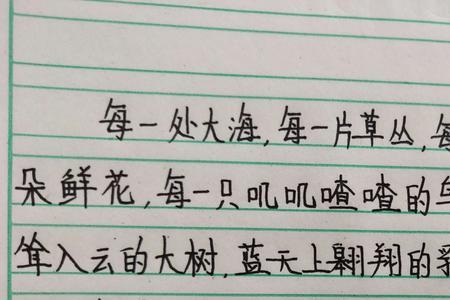 每一处大海,每一片草丛,每
朵鲜花,每一只叽叽喳喳的
耸入云的大树,蓝天上翱翔的